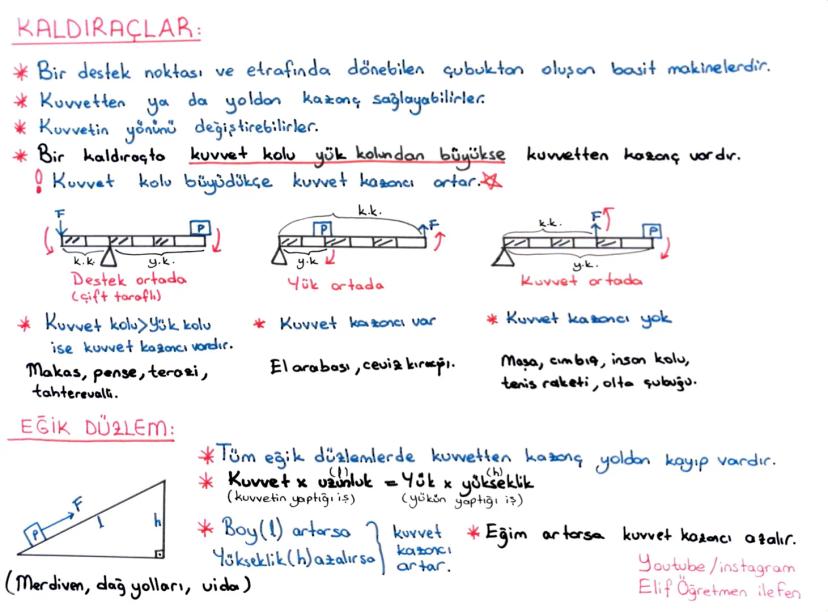 KALDIRAÇLAR:
* Bir destek noktası ve etrafında dönebilen çubuktan oluşan basit makinelerdir.
* Kuvvetten ya da yoldan kazanç sağlayabilirler.
* Kuvvetin yönünü değiştirebilirler.
* Bir kaldıraçta kuvvet kolu yük kolundan büyükse kuvvetten kazanç vardır.
! Kuvvet kolu büyüdükçe kuvvet kazancı artar.
F P k.k. y.k.
Destek ortada
(çift taraflı)
* Kuvvet kolu>Yük kolu
ise kuvvet kazancı vardır.
Makas, pense, terazi,
tahterevalli.
k.k. P F y.k.
Yük ortada
* Kuvvet kazancı var
El arabası, ceviz kıracağı.
k.k. F P y.k.
Kuvvet ortada
* Kuvvet kazancı yok
Maşa, cımbız, insan kolu,
tenis raketi, olta çubuğu.
EĞİK DÜZLEM:
P F l h
(Merdiven, dağ yolları, vida)
* Tüm eğik düzlemlerde kuvvetten kazanç yoldan kayıp vardır.
(l) (h)
* Kuvvet x uzunluk = Yük x yükseklik
(kuvvetin yaptığı iş) (yükün yaptığı iş)
* Boy(l) artarsa
Yükseklik(h) azalırsa
kuvvet
kazancı
artar.
* Eğim artarsa kuvvet kazancı azalır.
Youtube/instagram
Elif Öğretmen ile Fen